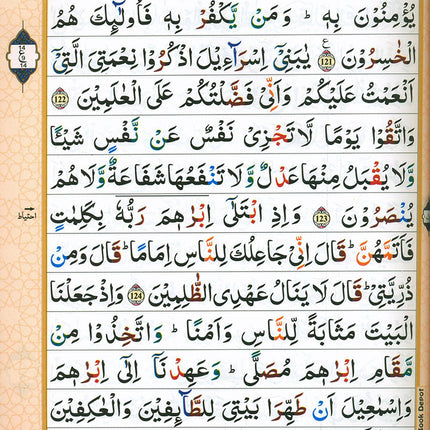 يُؤْمِنُوْنَ بِهٖ ؕ وَمَنْ يَّكْفُرْ بِهٖ فَاُولٰٓئِكَ هُمُ
الْخٰسِرُوْنَ ﴿121﴾ يٰبَنِيْۤ اِسْرَآءِيْلَ اذْكُرُوْا نِعْمَتِيَ الَّتِيْۤ
اَنْعَمْتُ عَلَيْكُمْ وَاَنِّيْ فَضَّلْتُكُمْ عَلَى الْعٰلَمِيْنَ ﴿122﴾
وَاتَّقُوْا يَوْمًا لَّا تَجْزِيْ نَفْسٌ عَنْ نَّفْسٍ شَيْـًٔا
وَّلَا يُقْبَلُ مِنْهَا عَدْلٌ وَّلَا تَنْفَعُهَا شَفَاعَةٌ وَّلَا هُمْ
يُنْصَرُوْنَ ﴿123﴾ وَاِذِ ابْتَلٰۤى اِبْرٰهٖمَ رَبُّهٗ بِكَلِمٰتٍ
فَاَتَمَّهُنَّ ؕ قَالَ اِنِّيْ جَاعِلُكَ لِلنَّاسِ اِمَامًا ؕ قَالَ وَمِنْ
ذُرِّيَّتِيْ ؕ قَالَ لَا يَنَالُ عَهْدِي الظّٰلِمِيْنَ ﴿124﴾ وَاِذْ جَعَلْنَا
الْبَيْتَ مَثَابَةً لِّلنَّاسِ وَاَمْنًا ؕ وَاتَّخِذُوْا مِنْ
مَّقَامِ اِبْرٰهٖمَ مُصَلًّى ؕ وَعَهِدْنَاۤ اِلٰۤى اِبْرٰهٖمَ
وَاِسْمٰعِيْلَ اَنْ طَهِّرَا بَيْتِيَ لِلطَّآئِفِيْنَ وَالْعٰكِفِيْنَ
احتیاط